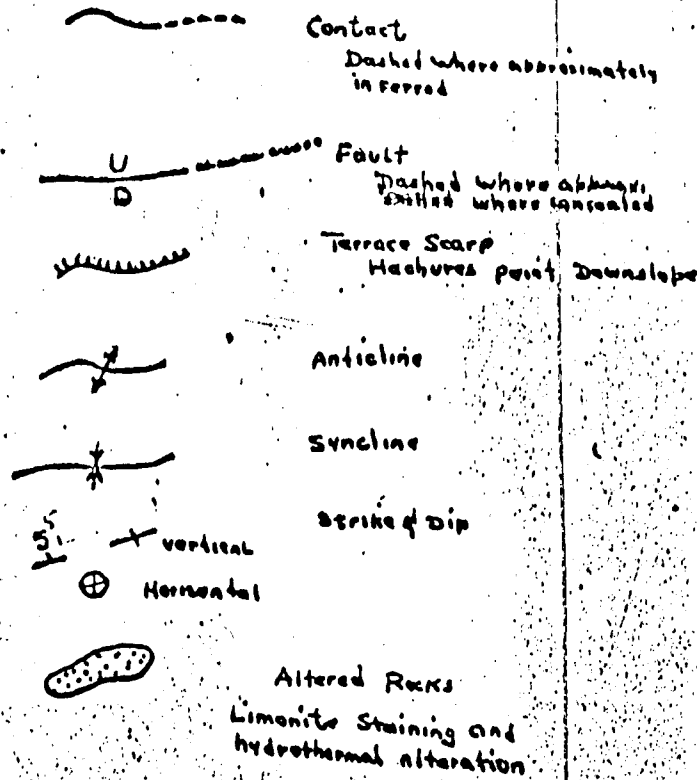 Contact
Dashed where approximately
inferred
U
D
Fault
Dashed where
Dotted where concealed
Terrace Scarp
Hachures point Downslope
Anticline
Syncline
Strike & Dip
55
vertical
Horizontal
Altered Rocks
Limonite Staining and
hydrothermal alteration